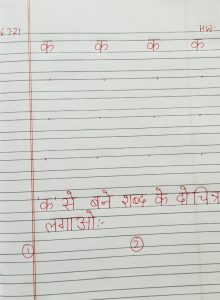 6.7.21 HW:-
क क क क
'क' से बने शब्द के दो चित्र
लगाओ:-
① ②